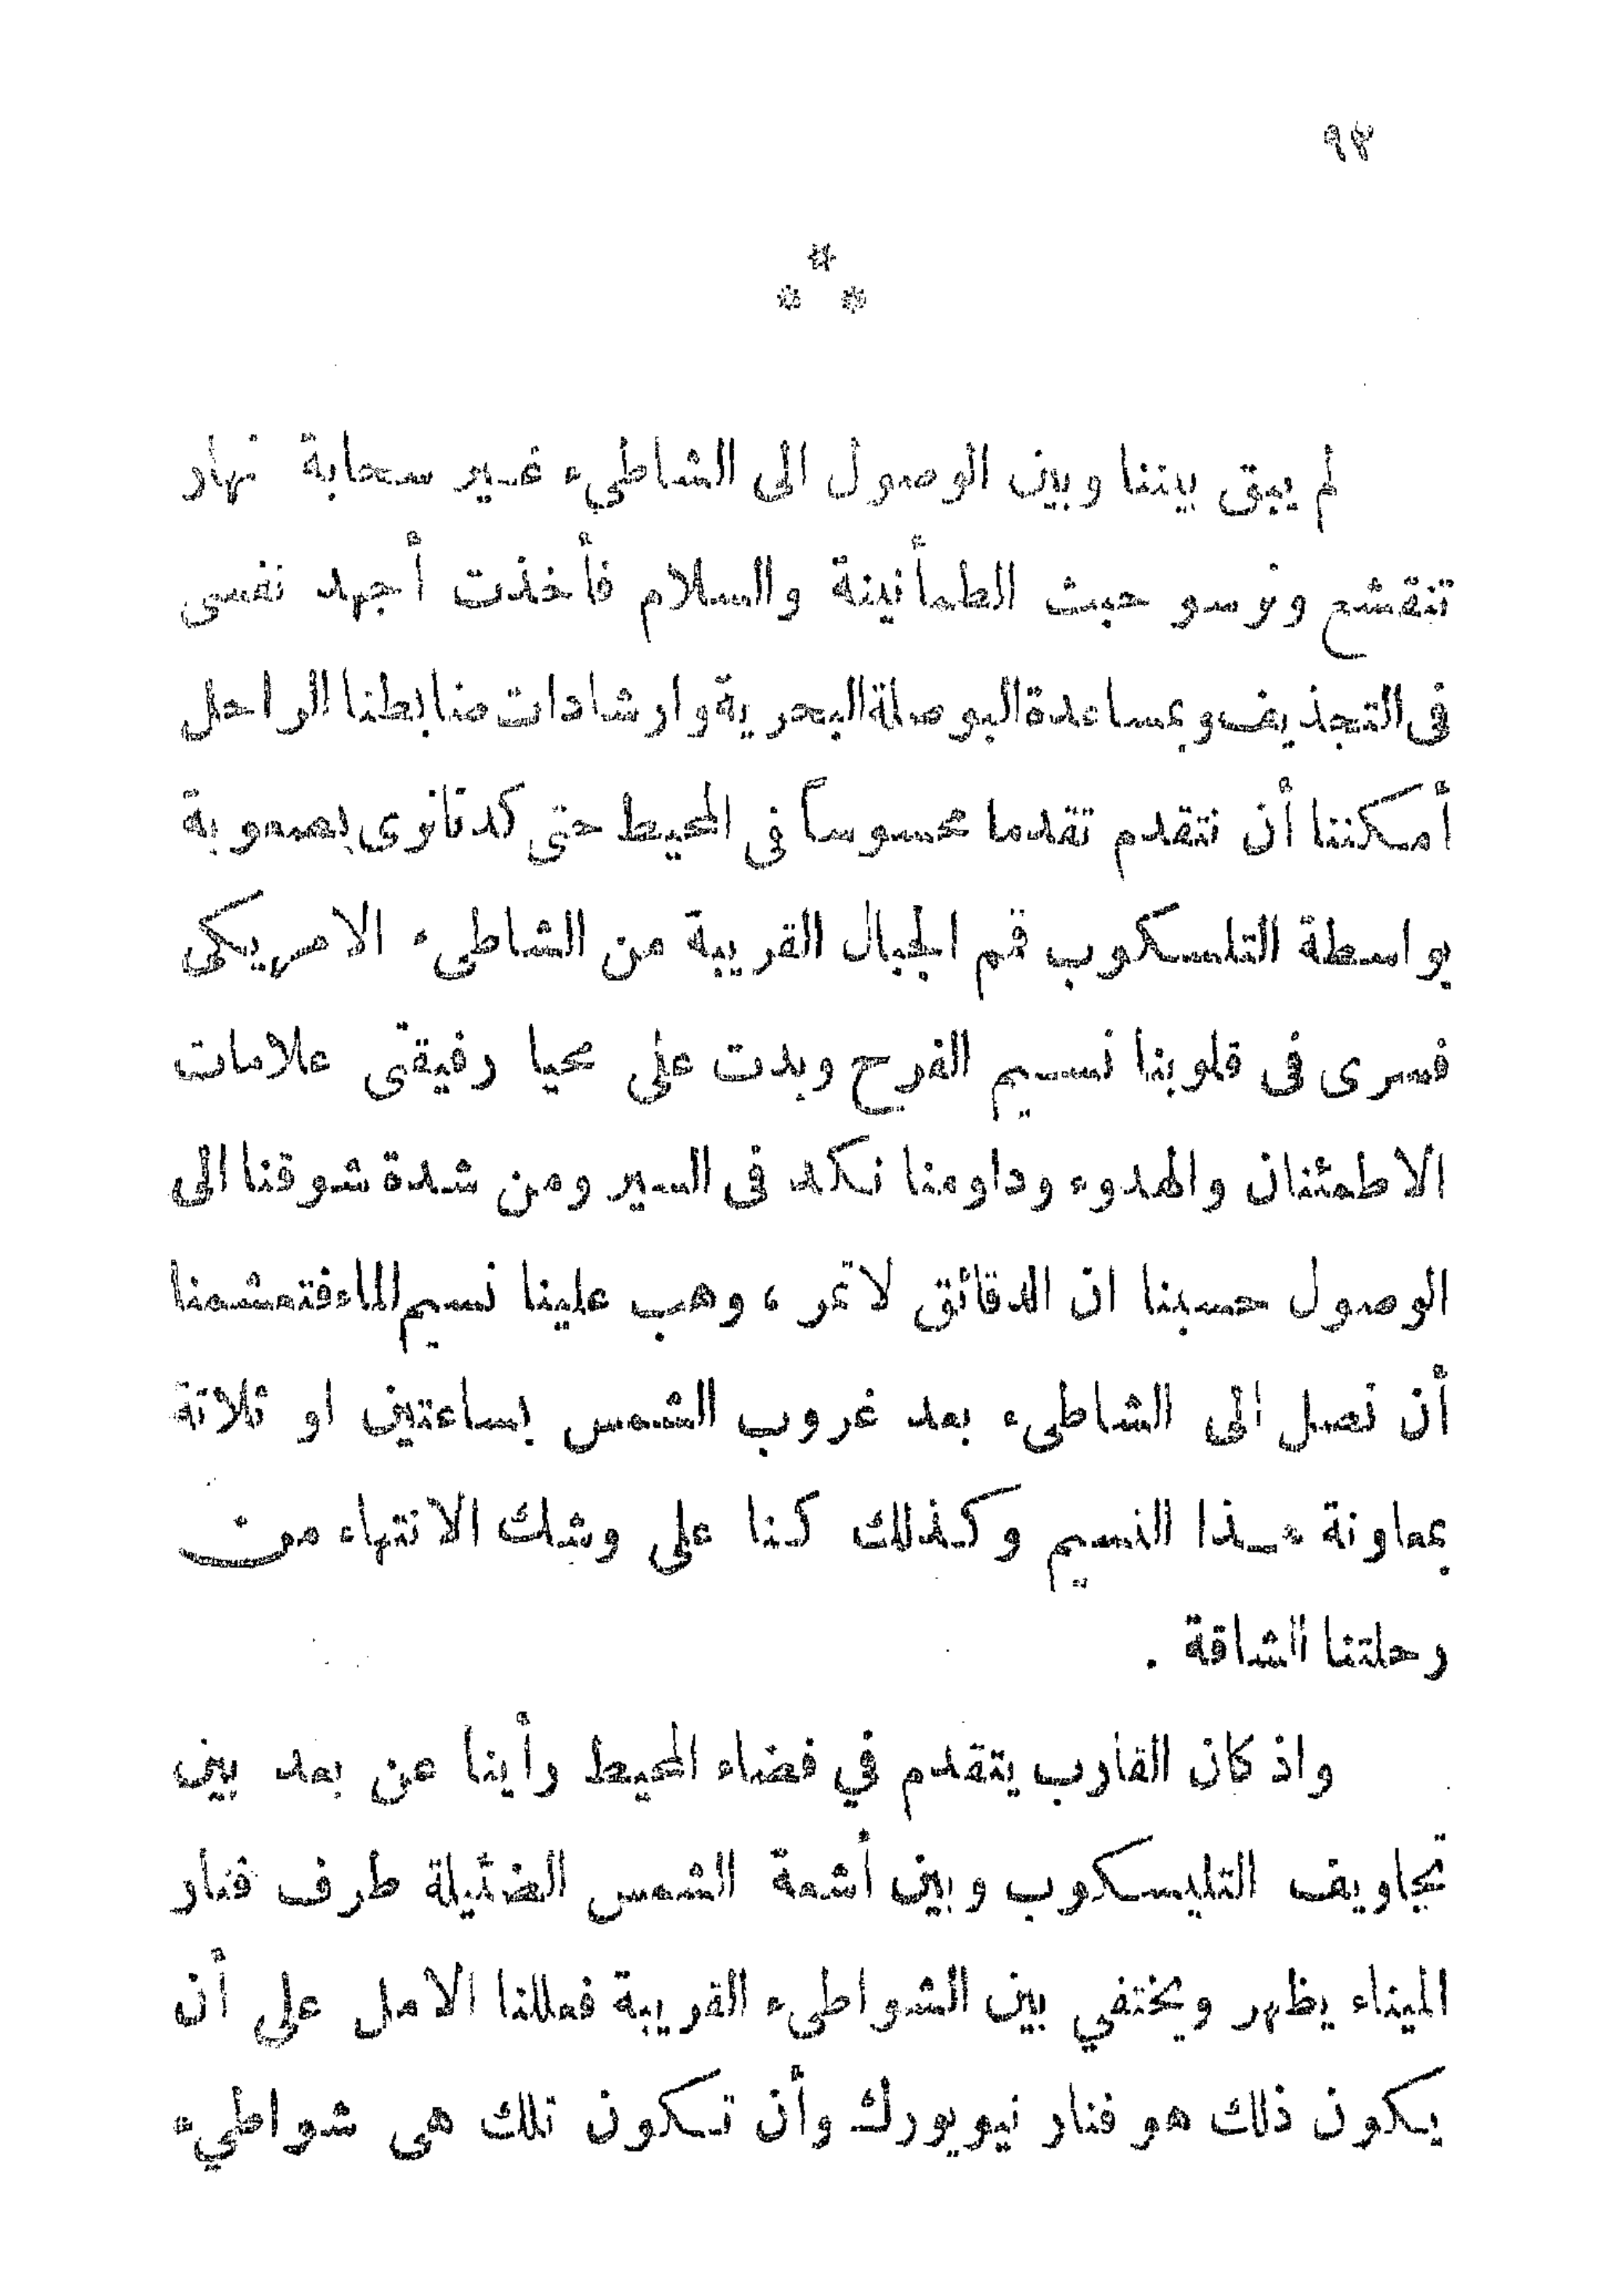 ٩٤
*
* *
لم يبق بيننا وبين الوصول الى الشاطىء غير سحابة نهار
تنقشع ونرسو حيث الطمأنينة والسلام فأخذت أجهد نفسى
فى التجذيف وبمساعدة البوصلة البحرية وارشادات ضابطنا الراحل
أمكننا أن نتقدم تقدما محسوساً فى المحيط حتى كدنا نرى بصعوبة
بواسطة التلسكوب قمم الجبال القريبة من الشاطىء الامريكى
فسرى فى قلوبنا نسيم الفرح وبدت على محيا رفيقتى علامات
الاطمئنان والهدوء وداومنا نكد فى السير ومن شدة شوقنا الى
الوصول حسبنا ان الدقائق لا تمر ، وهب علينا نسيم الماء فتعشمنا
أن نصل الى الشاطىء بعد غروب الشمس بساعتين او ثلاثة
بمعاونة هذا النسيم وكذلك كنا على وشك الانتهاء من
رحلتنا الشاقة .
واذ كان القارب يتقدم في فضاء المحيط رأينا عن بعد بين
تجاويف التليسكوب وبين أشعة الشمس الضئيلة طرف فنار
الميناء يظهر ويختفي بين الشواطىء القريبة فعللنا الامل على أن
يكون ذلك هو فنار نيويورك وأن تكون تلك هى شواطىء